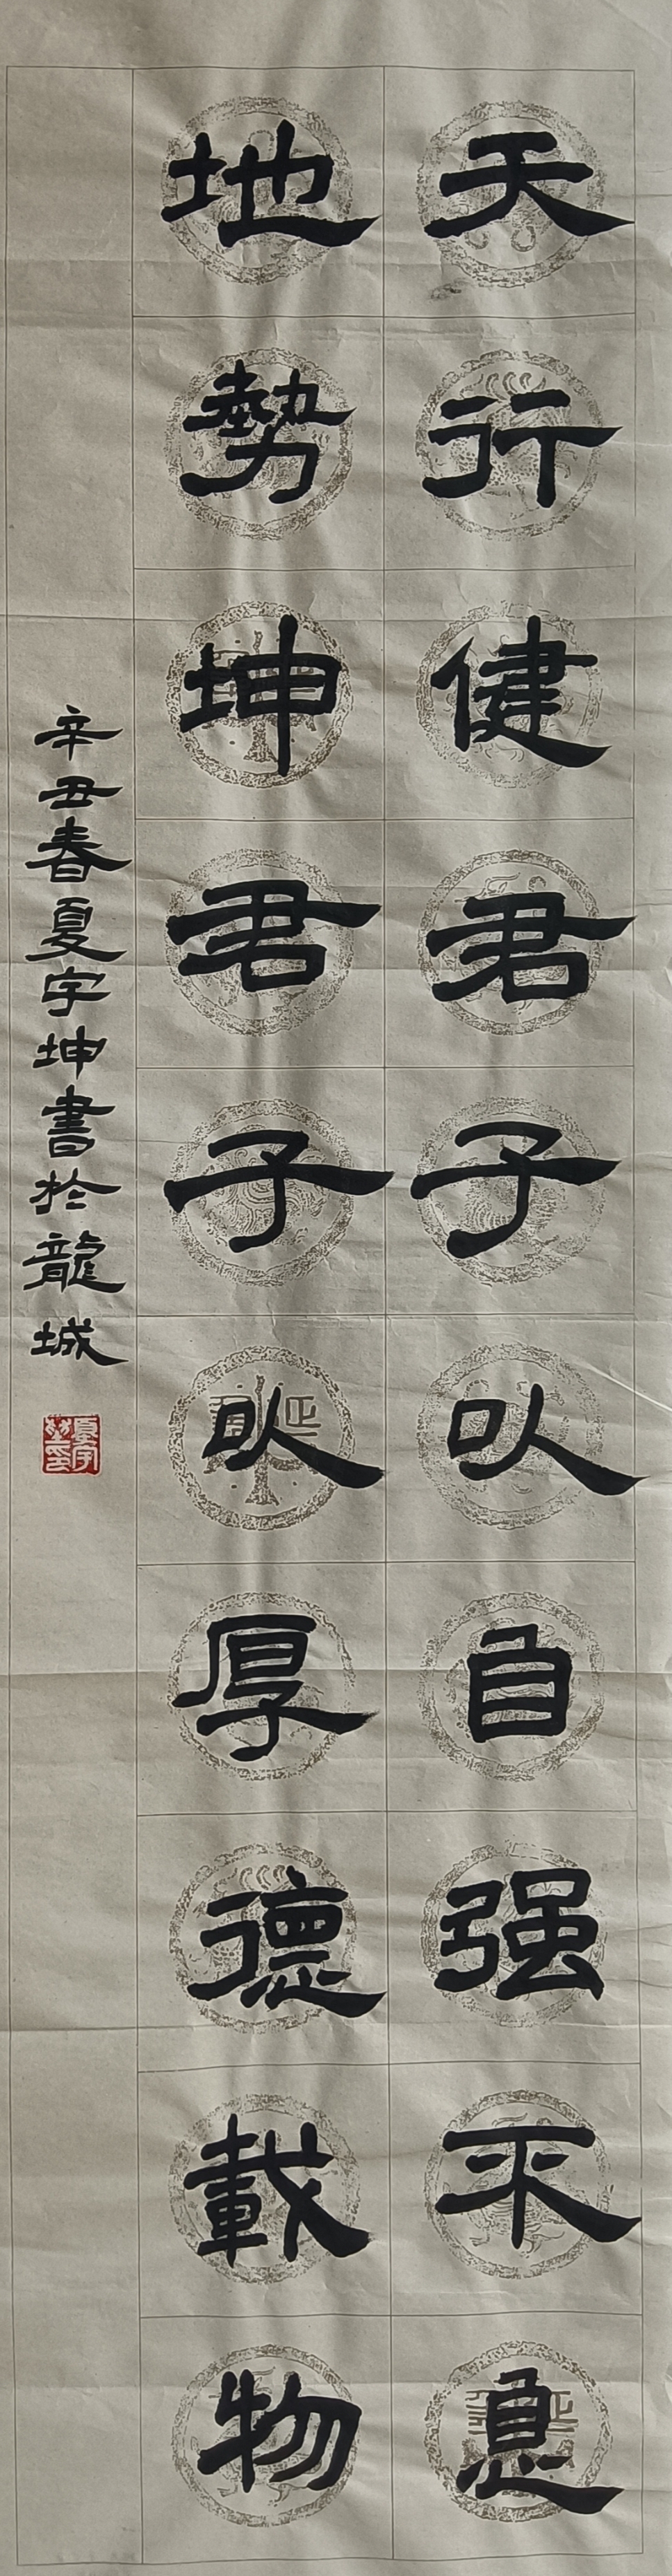 天行健君子以自强不息
地勢坤君子以厚德載物
辛丑春夏宇坤書於龍城